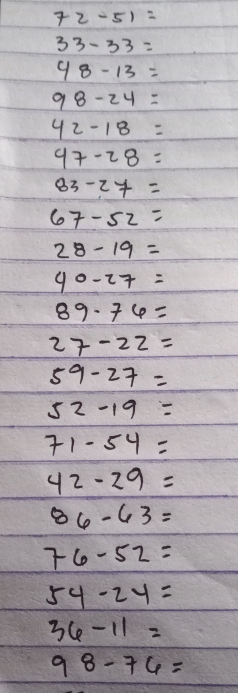 72-51=
33-33=
48-13=
98-24=
42-18=
47-28=
83-27=
67-52=
28-19=
40-27=
89-76=
27-22=
59-27=
52-19=
71-54=
42-29=
86-63=
76-52=
54-24=
36-11=
98-76=